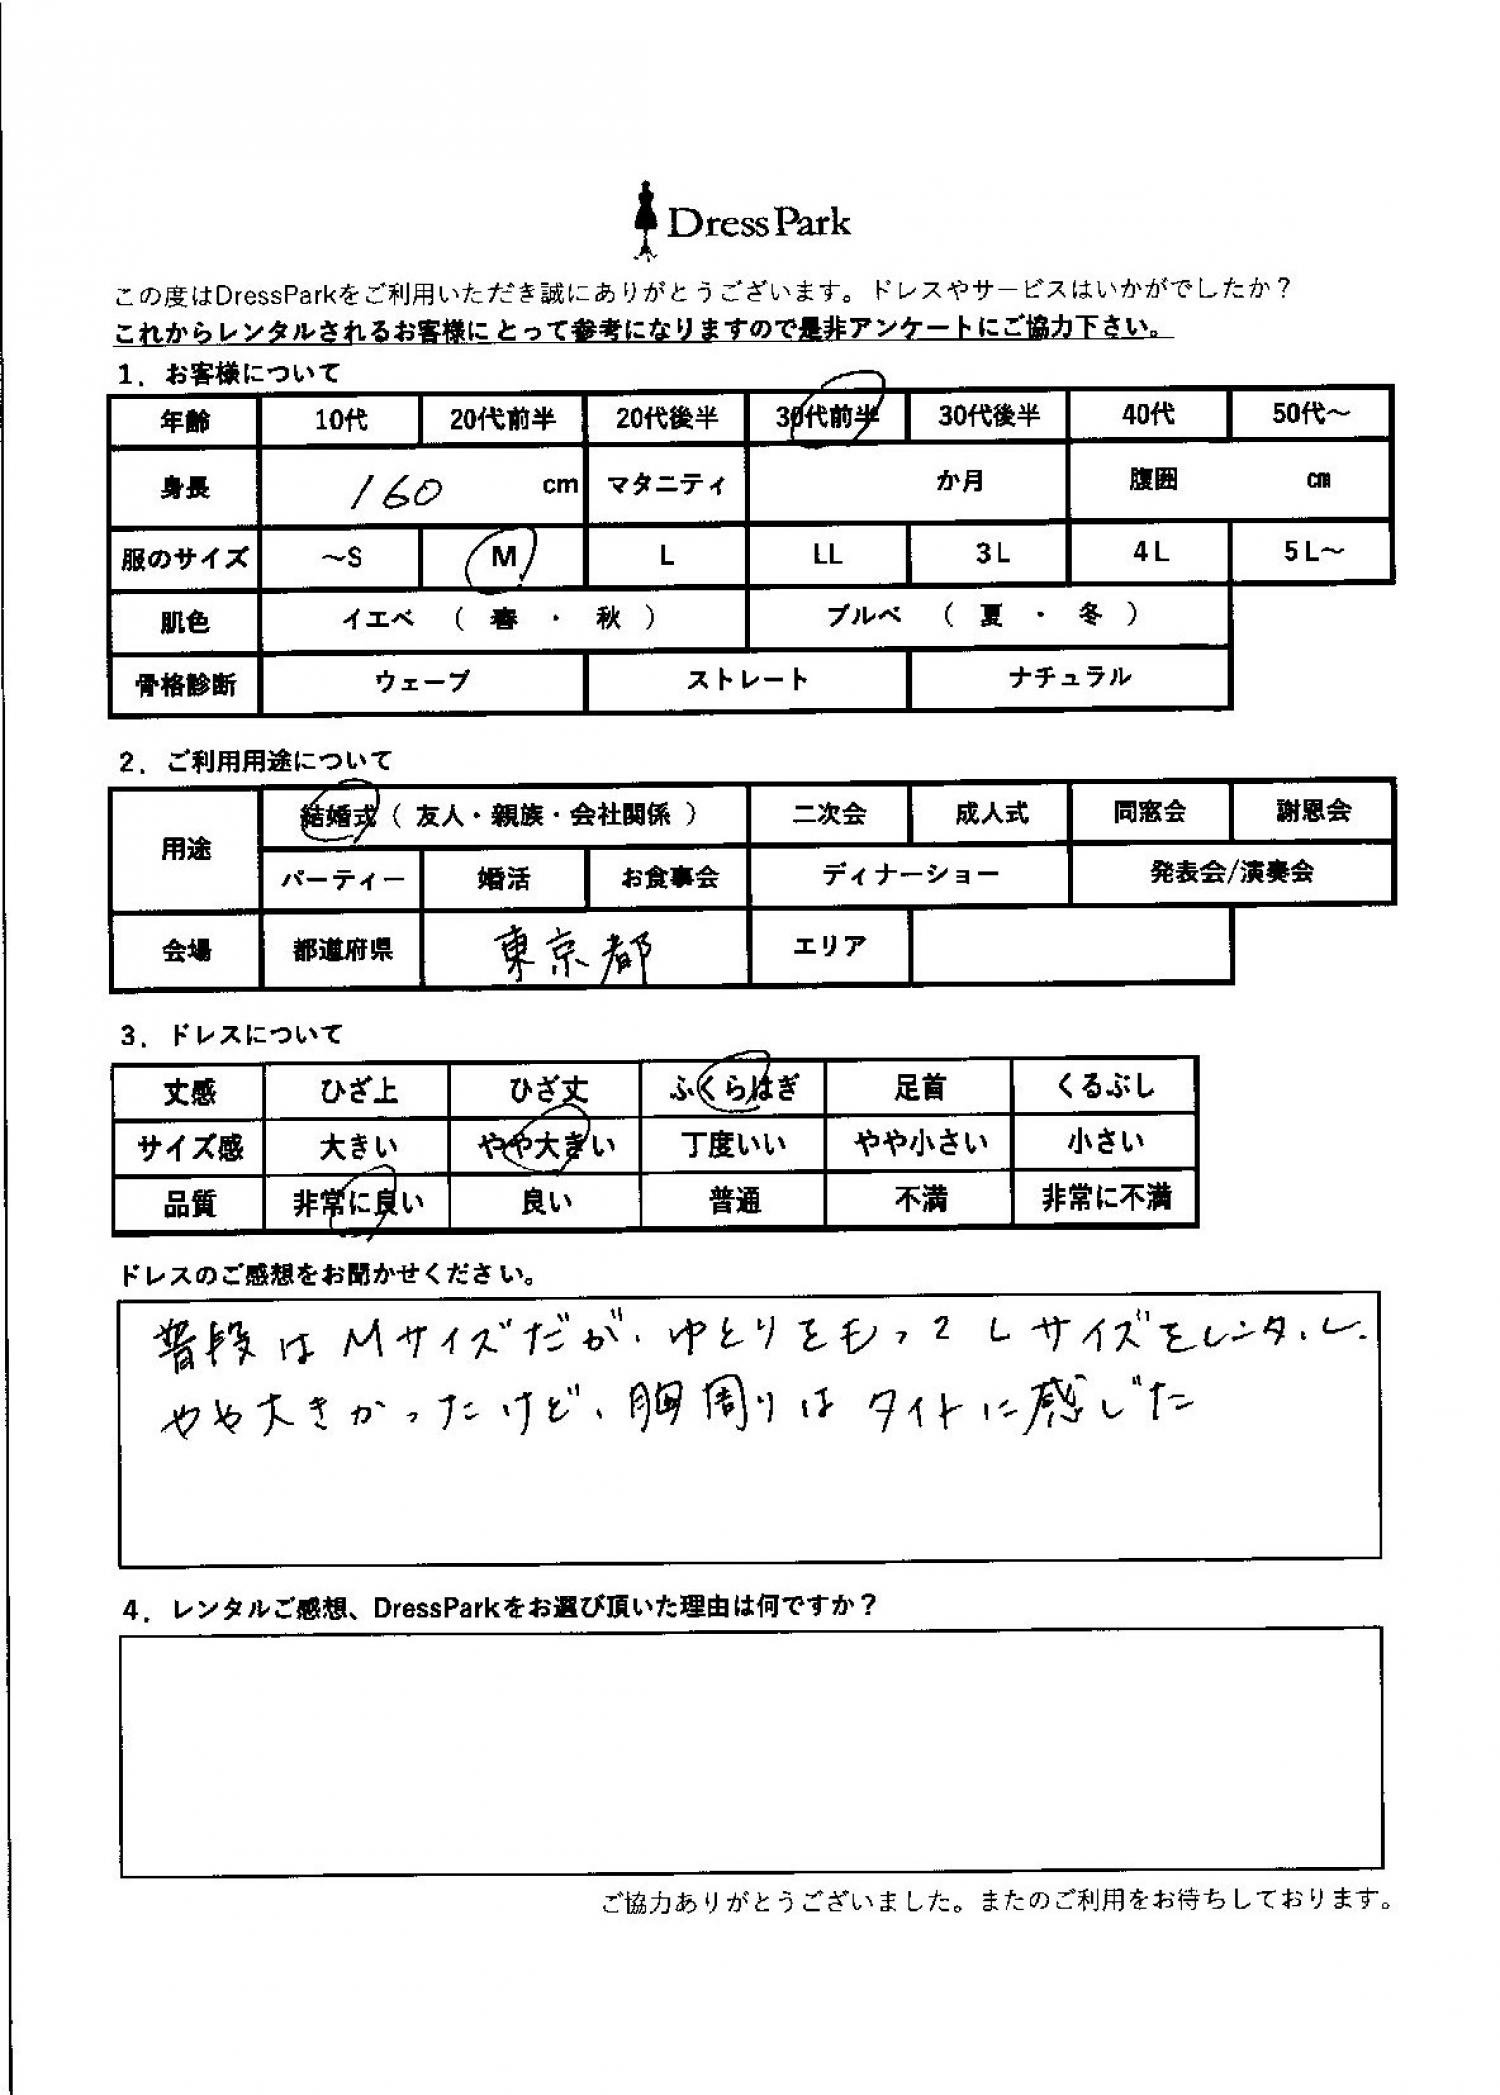 DressPark
この度はDressParkをご利用いただき誠にありがとうございます。ドレスやサービスはいかがでしたか？
これからレンタルされるお客様にとって参考になりますので是非アンケートにご協力下さい。
1．お客様について
年齢 10代 20代前半 20代後半 30代前半 30代後半 40代 50代～
身長 160 cm マタニティ か月 腹囲 cm
服のサイズ ～S M L LL 3L 4L 5L～
肌色 イエベ （ 春 ・ 秋 ） ブルベ （ 夏 ・ 冬 ）
骨格診断 ウェーブ ストレート ナチュラル
2．ご利用用途について
用途 結婚式（ 友人・親族・会社関係 ） 二次会 成人式 同窓会 謝恩会
パーティー 婚活 お食事会 ディナーショー 発表会/演奏会
会場 都道府県 東京都 エリア
3．ドレスについて
丈感 ひざ上 ひざ丈 ふくらはぎ 足首 くるぶし
サイズ感 大きい やや大きい 丁度いい やや小さい 小さい
品質 非常に良い 良い 普通 不満 非常に不満
ドレスのご感想をお聞かせください。
普段はMサイズだが、ゆとりをもってLサイズをレンタルし、
やや大きかったけど、胸周りはタイトに感じた
4．レンタルご感想、DressParkをお選び頂いた理由は何ですか？
ご協力ありがとうございました。またのご利用をお待ちしております。